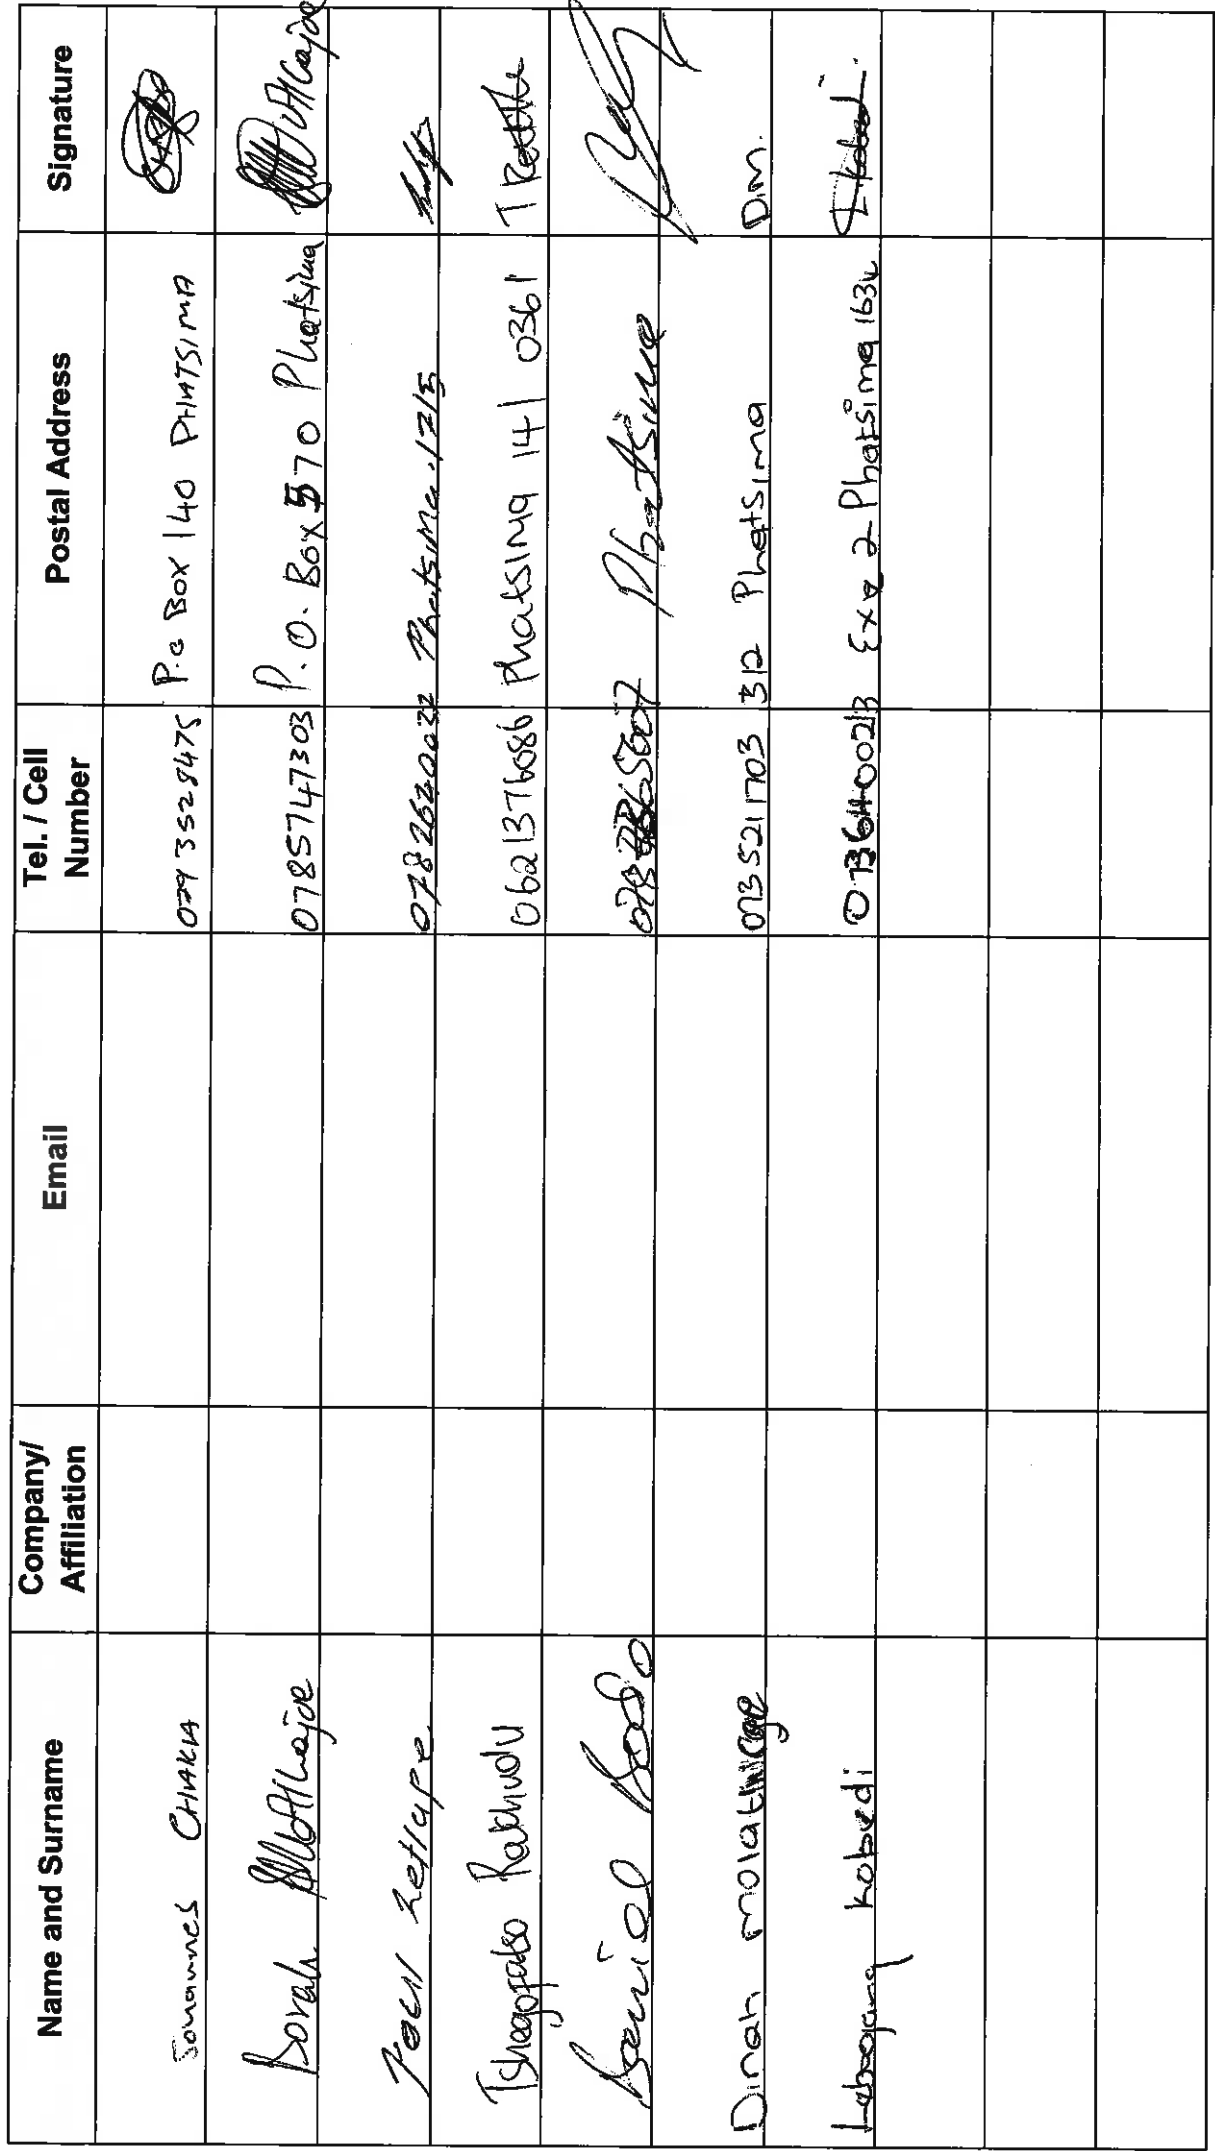 Name and Surname Company/ Affiliation Email Tel. / Cell Number Postal Address Signature
Johannes CHAKIA 0793528475 P.O Box 140 PHATSIMA
Dorah 0785747303 P.O. Box 570 Phatsima
Paul Letlape 0782620032 Phatsima 1215
Tshegofatso Rakhudu 0621376086 Phatsima 141 0361
Daniel Phatsima
Dinah 0735211703 312 Phatsima D.m.
Lebogang Kobedi Ext 2 Phatsima